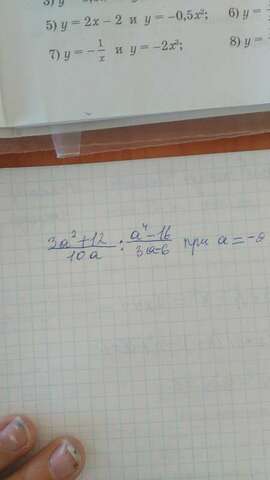 5) y = 2x − 2 и y = −0,5x²; 6) y =
7) y = −1/x и y = −2x²; 8) y =
(3a² + 12)/(10a) : (a⁴ − 16)/(3a − 6) при a = −